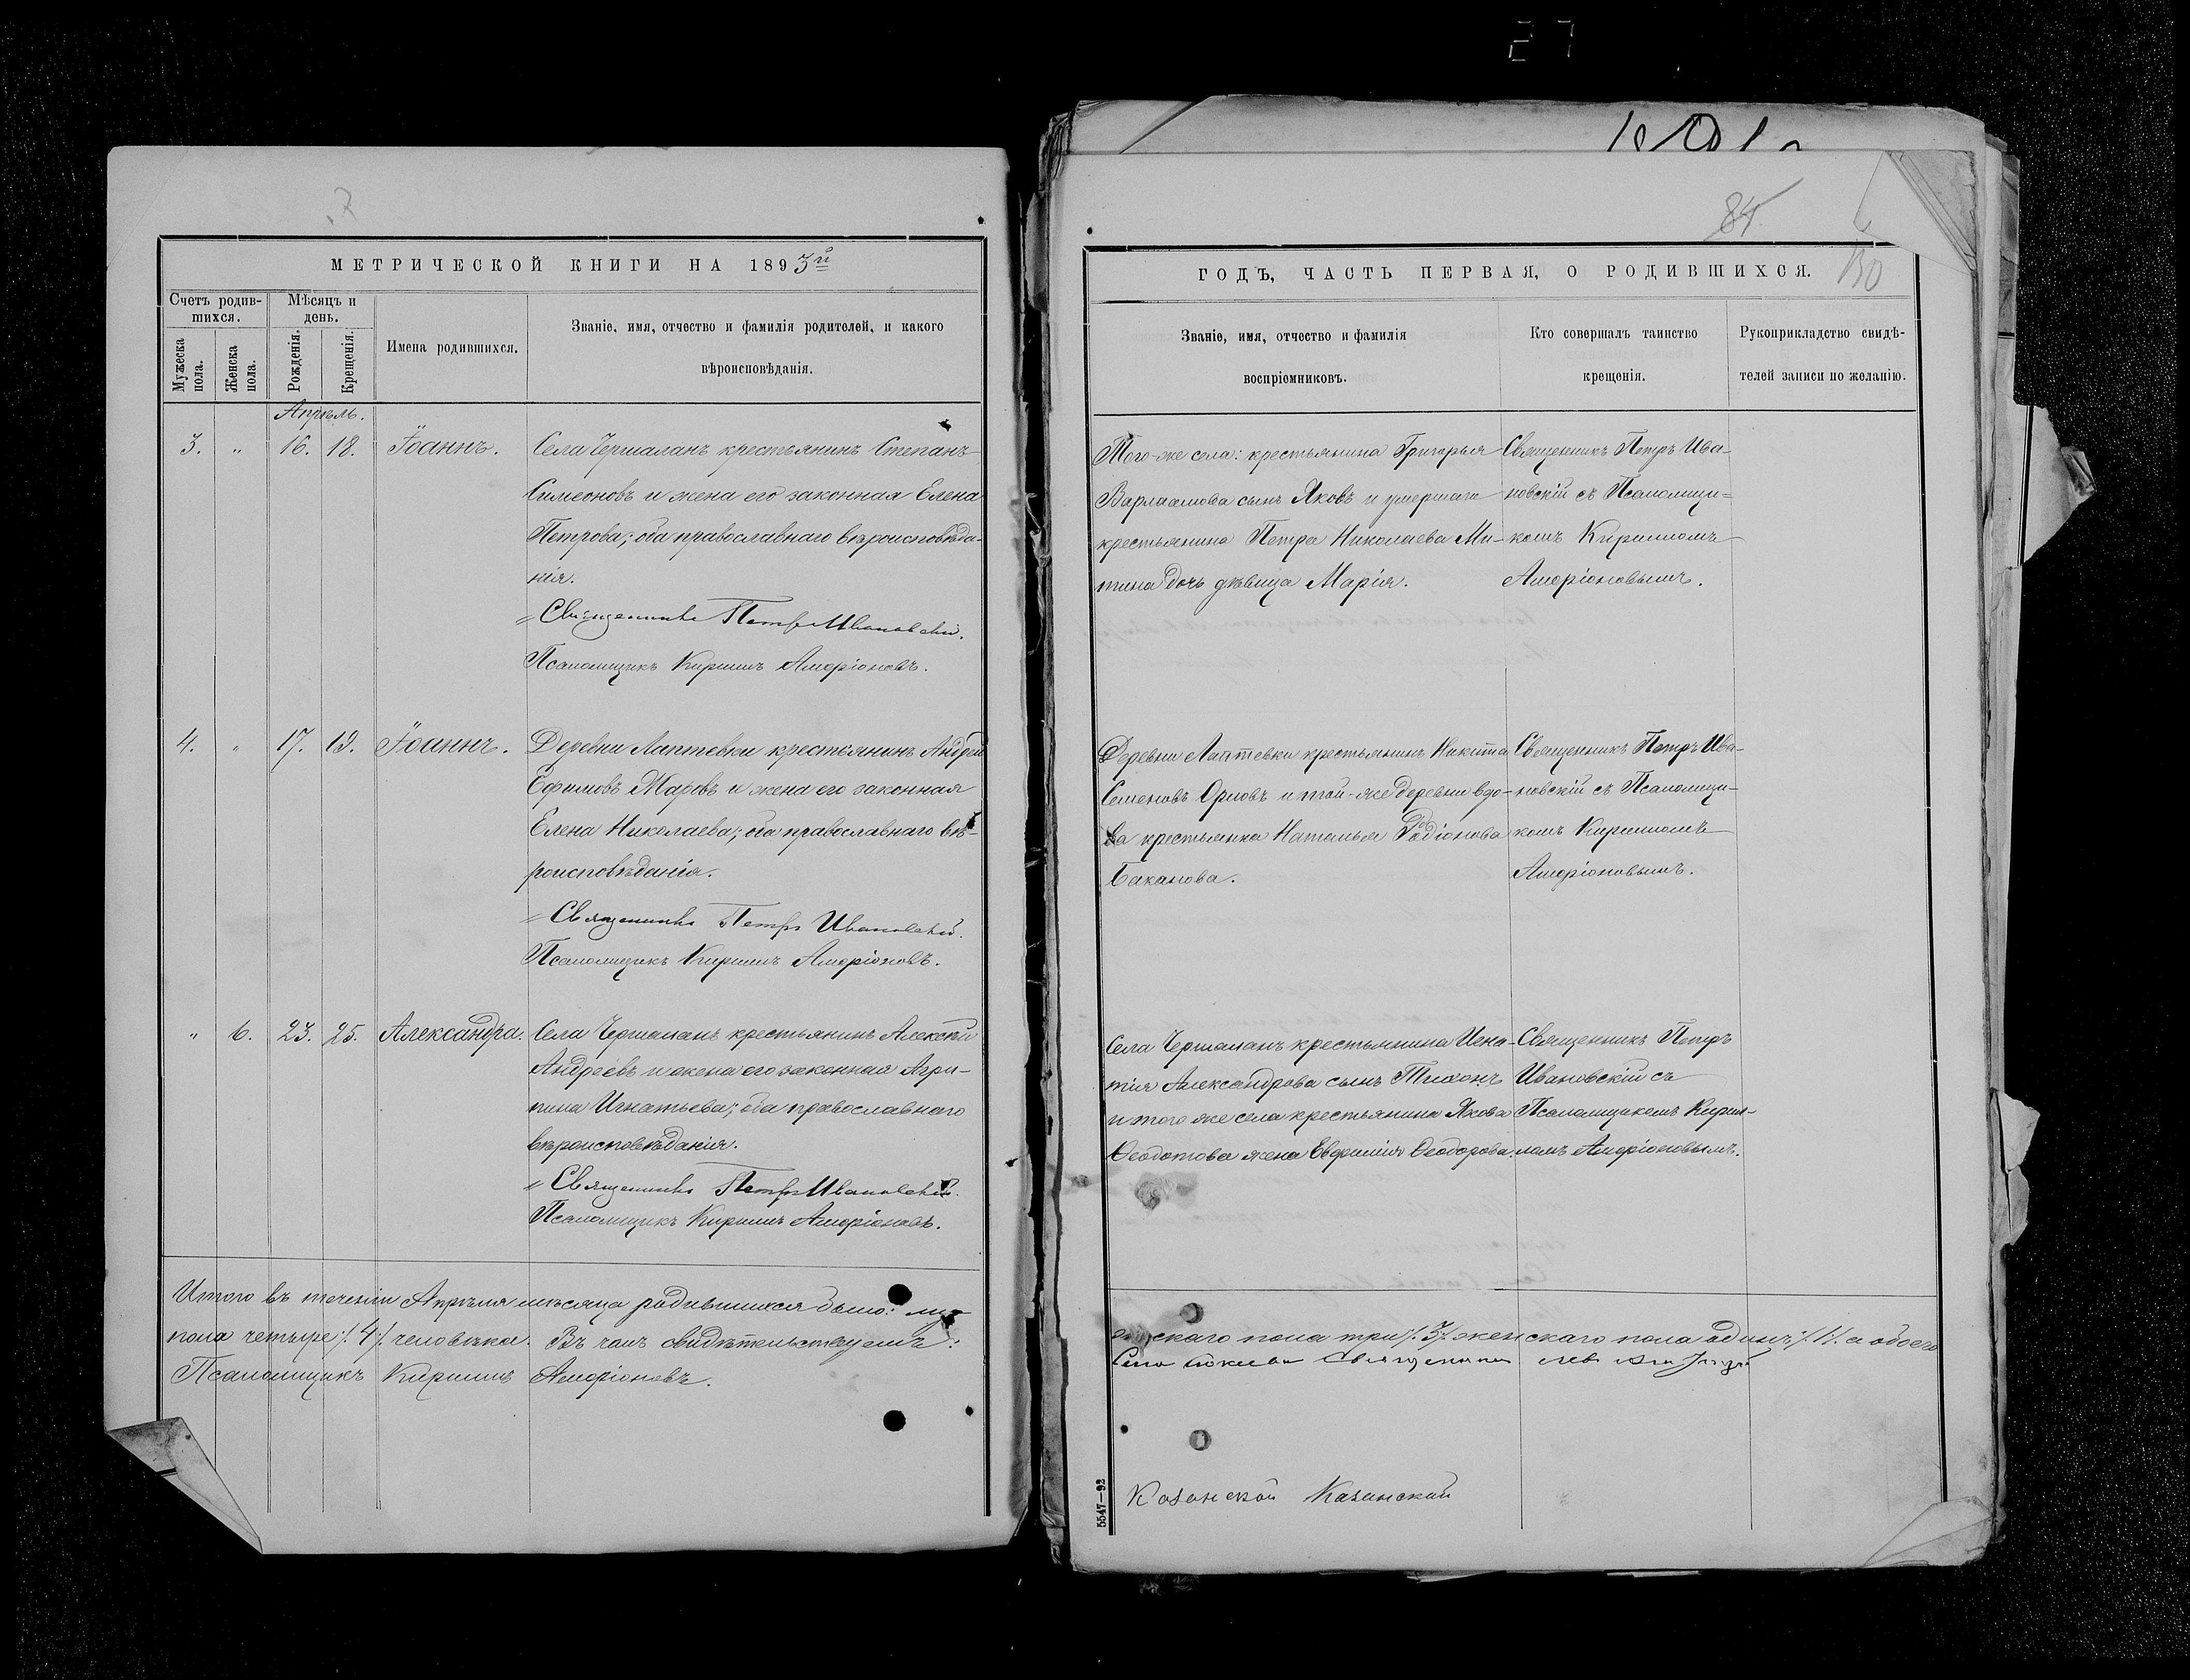 27
84
150
МЕТРИЧЕСКОЙ КНИГИ НА 1893й
Счетъ родив-
шихся.
Мѣсяцъ и
день.
Мужеска
пола.
Женска
пола.
Рожденія.
Крещенія.
Имена родившихся.
Званіе, имя, отчество и фамилія родителей, и какого
вѣроисповѣданія.
Апрѣль.
3. " 16. 18. Іоаннъ. Села Чершаланъ крестьянинъ Степанъ
Симеоновъ и жена его законная Елена
Петрова; оба православнаго вѣроисповѣда-
нія.
Священникъ Петръ Ивановскій.
Псаломщикъ Кириллъ Аморіоновъ.
4. " 17. 19. Іоаннъ. Деревни Лаптевки крестьянинъ Андрей
Ефимовъ Маровъ и жена его законная
Елена Николаева; оба православнаго вѣ-
роисповѣданія.
Священникъ Петръ Ивановскій.
Псаломщикъ Кириллъ Аморіоновъ.
" 6. 23. 25. Александра. Села Чершаланъ крестьянинъ Алексѣй
Андреевъ и жена его законная Агри-
пина Игнатьева; оба православнаго
вѣроисповѣданія.
Священникъ Петръ Ивановскій.
Псаломщикъ Кириллъ Аморіоновъ.
Итого въ теченіи Апрѣля мѣсяца родившихся было: муж
пола четыре /.4/. человѣка. Въ чемъ свидѣтельствуемъ:
Псаломщикъ Кириллъ Аморіоновъ.
ГОДЪ, ЧАСТЬ ПЕРВАЯ, О РОДИВШИХСЯ.
Званіе, имя, отчество и фамилія
воспріемниковъ.
Кто совершалъ таинство
крещенія.
Рукоприкладство свидѣ-
телей записи по желанію.
Того-же села: крестьянина Григорья
Варлаамова сынъ Яковъ и умершаго
крестьянина Петра Николаева Ми-
тина дочь дѣвица Марія.
Священникъ Петръ Ива-
новскій съ Псаломщи-
комъ Кирилломъ
Аморіоновымъ.
Деревни Лаптевки крестьянинъ Никита
Семеновъ Орловъ и той-же деревни вдо-
ва крестьянка Наталья Родіонова
Баканова.
Священникъ Петръ Ива-
новскій съ Псаломщи-
комъ Кирилломъ
Аморіоновымъ.
Села Чершаланъ крестьянина Игна-
тія Александрова сынъ Тихонъ
и того же села крестьянина Якова
Ѳеодотова жена Евфимія Ѳеодорова.
Священникъ Петръ
Ивановскій съ
Псаломщикомъ Кирил-
ломъ Аморіоновымъ.
скаго пола три /.3/. женскаго пола одинъ /.1/. а обоего
Священникъ
Казанской Казанской
5547—92